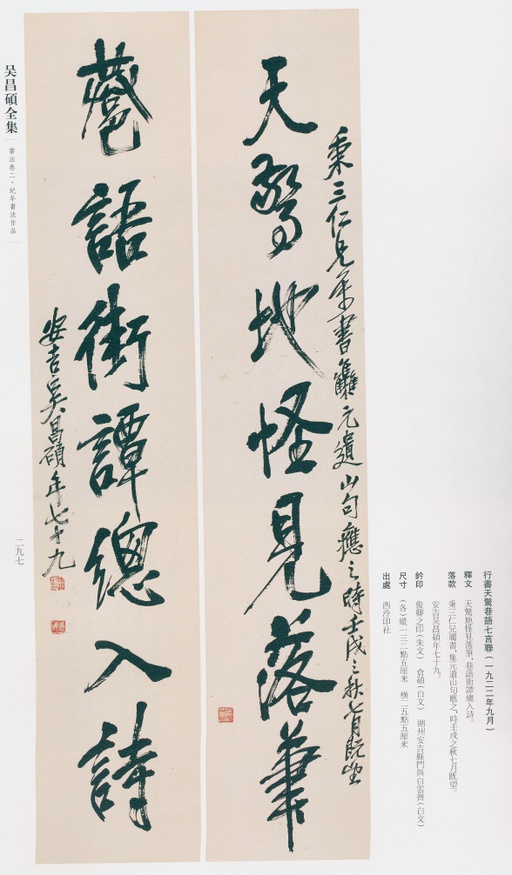 天驚地怪見落筆
秉三仁兄屬書集元遺山句應之時壬戌之秋七月既望
巷語街譚總入詩
安吉吳昌碩年七十九
吴昌碩全集
書法卷二·紀年書法作品
二九七
行書天驚巷語七言聯（一九二二年九月）
釋文 天驚地怪見落筆，巷語街譚總入詩。
落款 秉三仁兄屬書，集元遺山句應之，時壬戌之秋七月既望。
安吉吴昌碩年七十九。
鈐印 俊卿之印（朱文） 倉碩（白文） 湖州安吉縣門與白雲齊（白文）
尺寸 （各）縱一三二點五厘米 橫二五點五厘米
出處 西泠印社